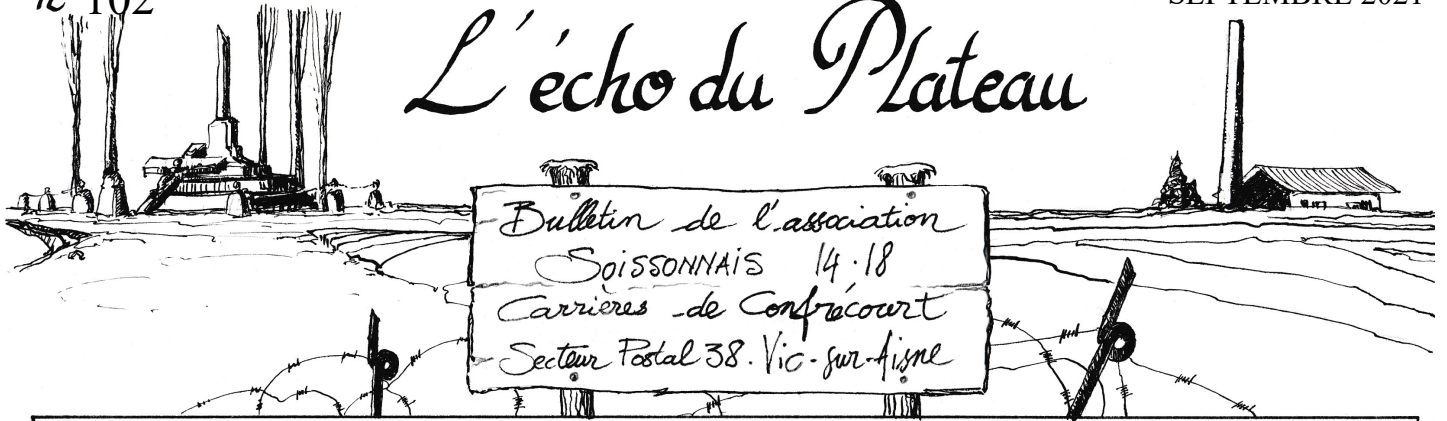 n° 102
SEPTEMBRE 2021
L'écho du Plateau
Bulletin de l'association
SOISSONNAIS 14.18
Carrières de Confrécourt
Secteur Postal 38. Vic-sur-Aisne